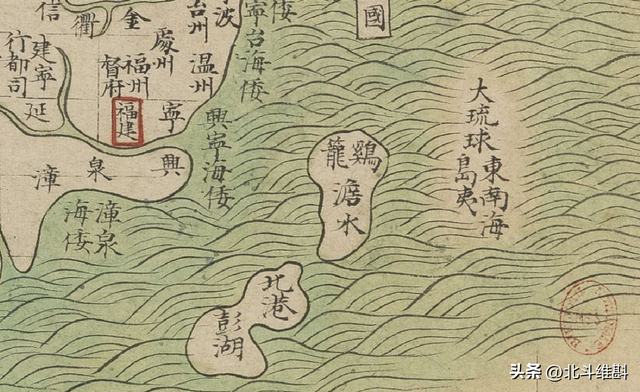 信
衢
金
處州
台州
波
寧台海倭
倭
國
建寧
行都司
延
督府
福州
温州
福建
寧
興寧海倭
漳
泉
興
漳泉
海倭
鷄
籠
澹水
北港
彭湖
大琉球
東南海
島夷
头条 @北斗维斟